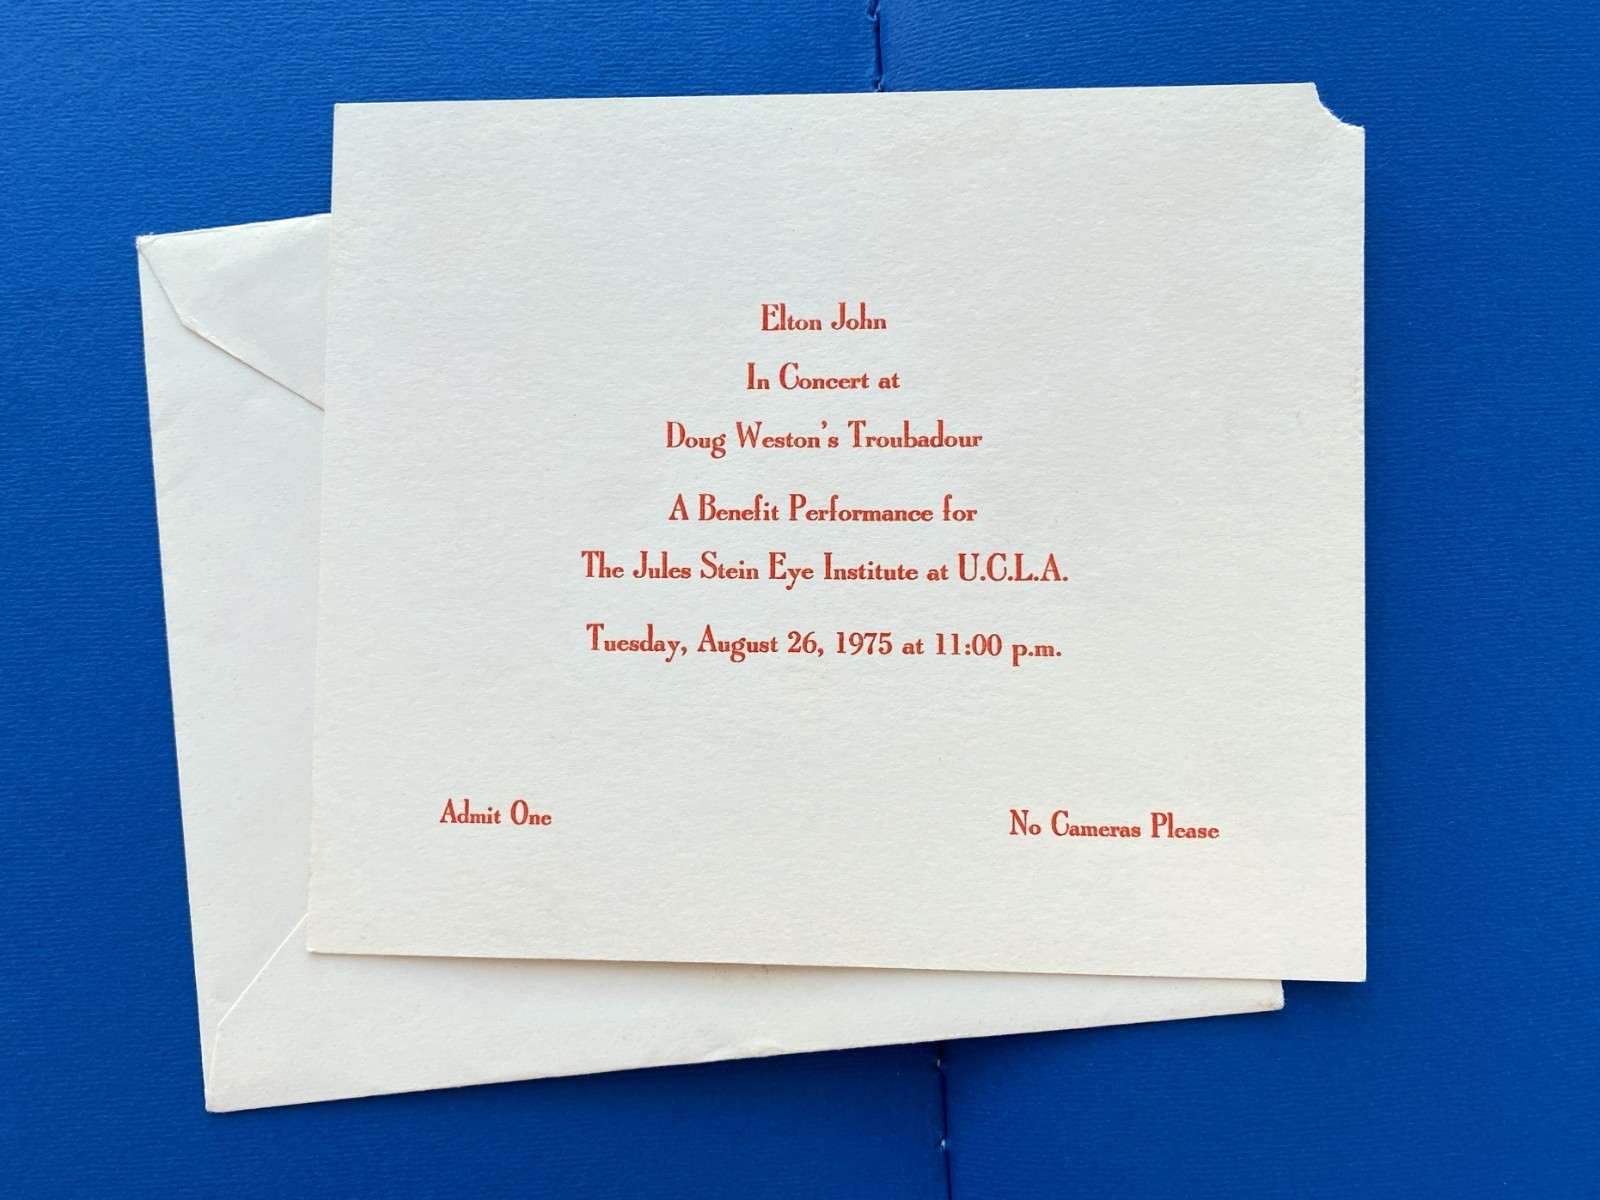 Elton John
In Concert at
Doug Weston's Troubadour
A Benefit Performance for
The Jules Stein Eye Institute at U.C.L.A.
Tuesday, August 26, 1975 at 11:00 p.m.
Admit One
No Cameras Please